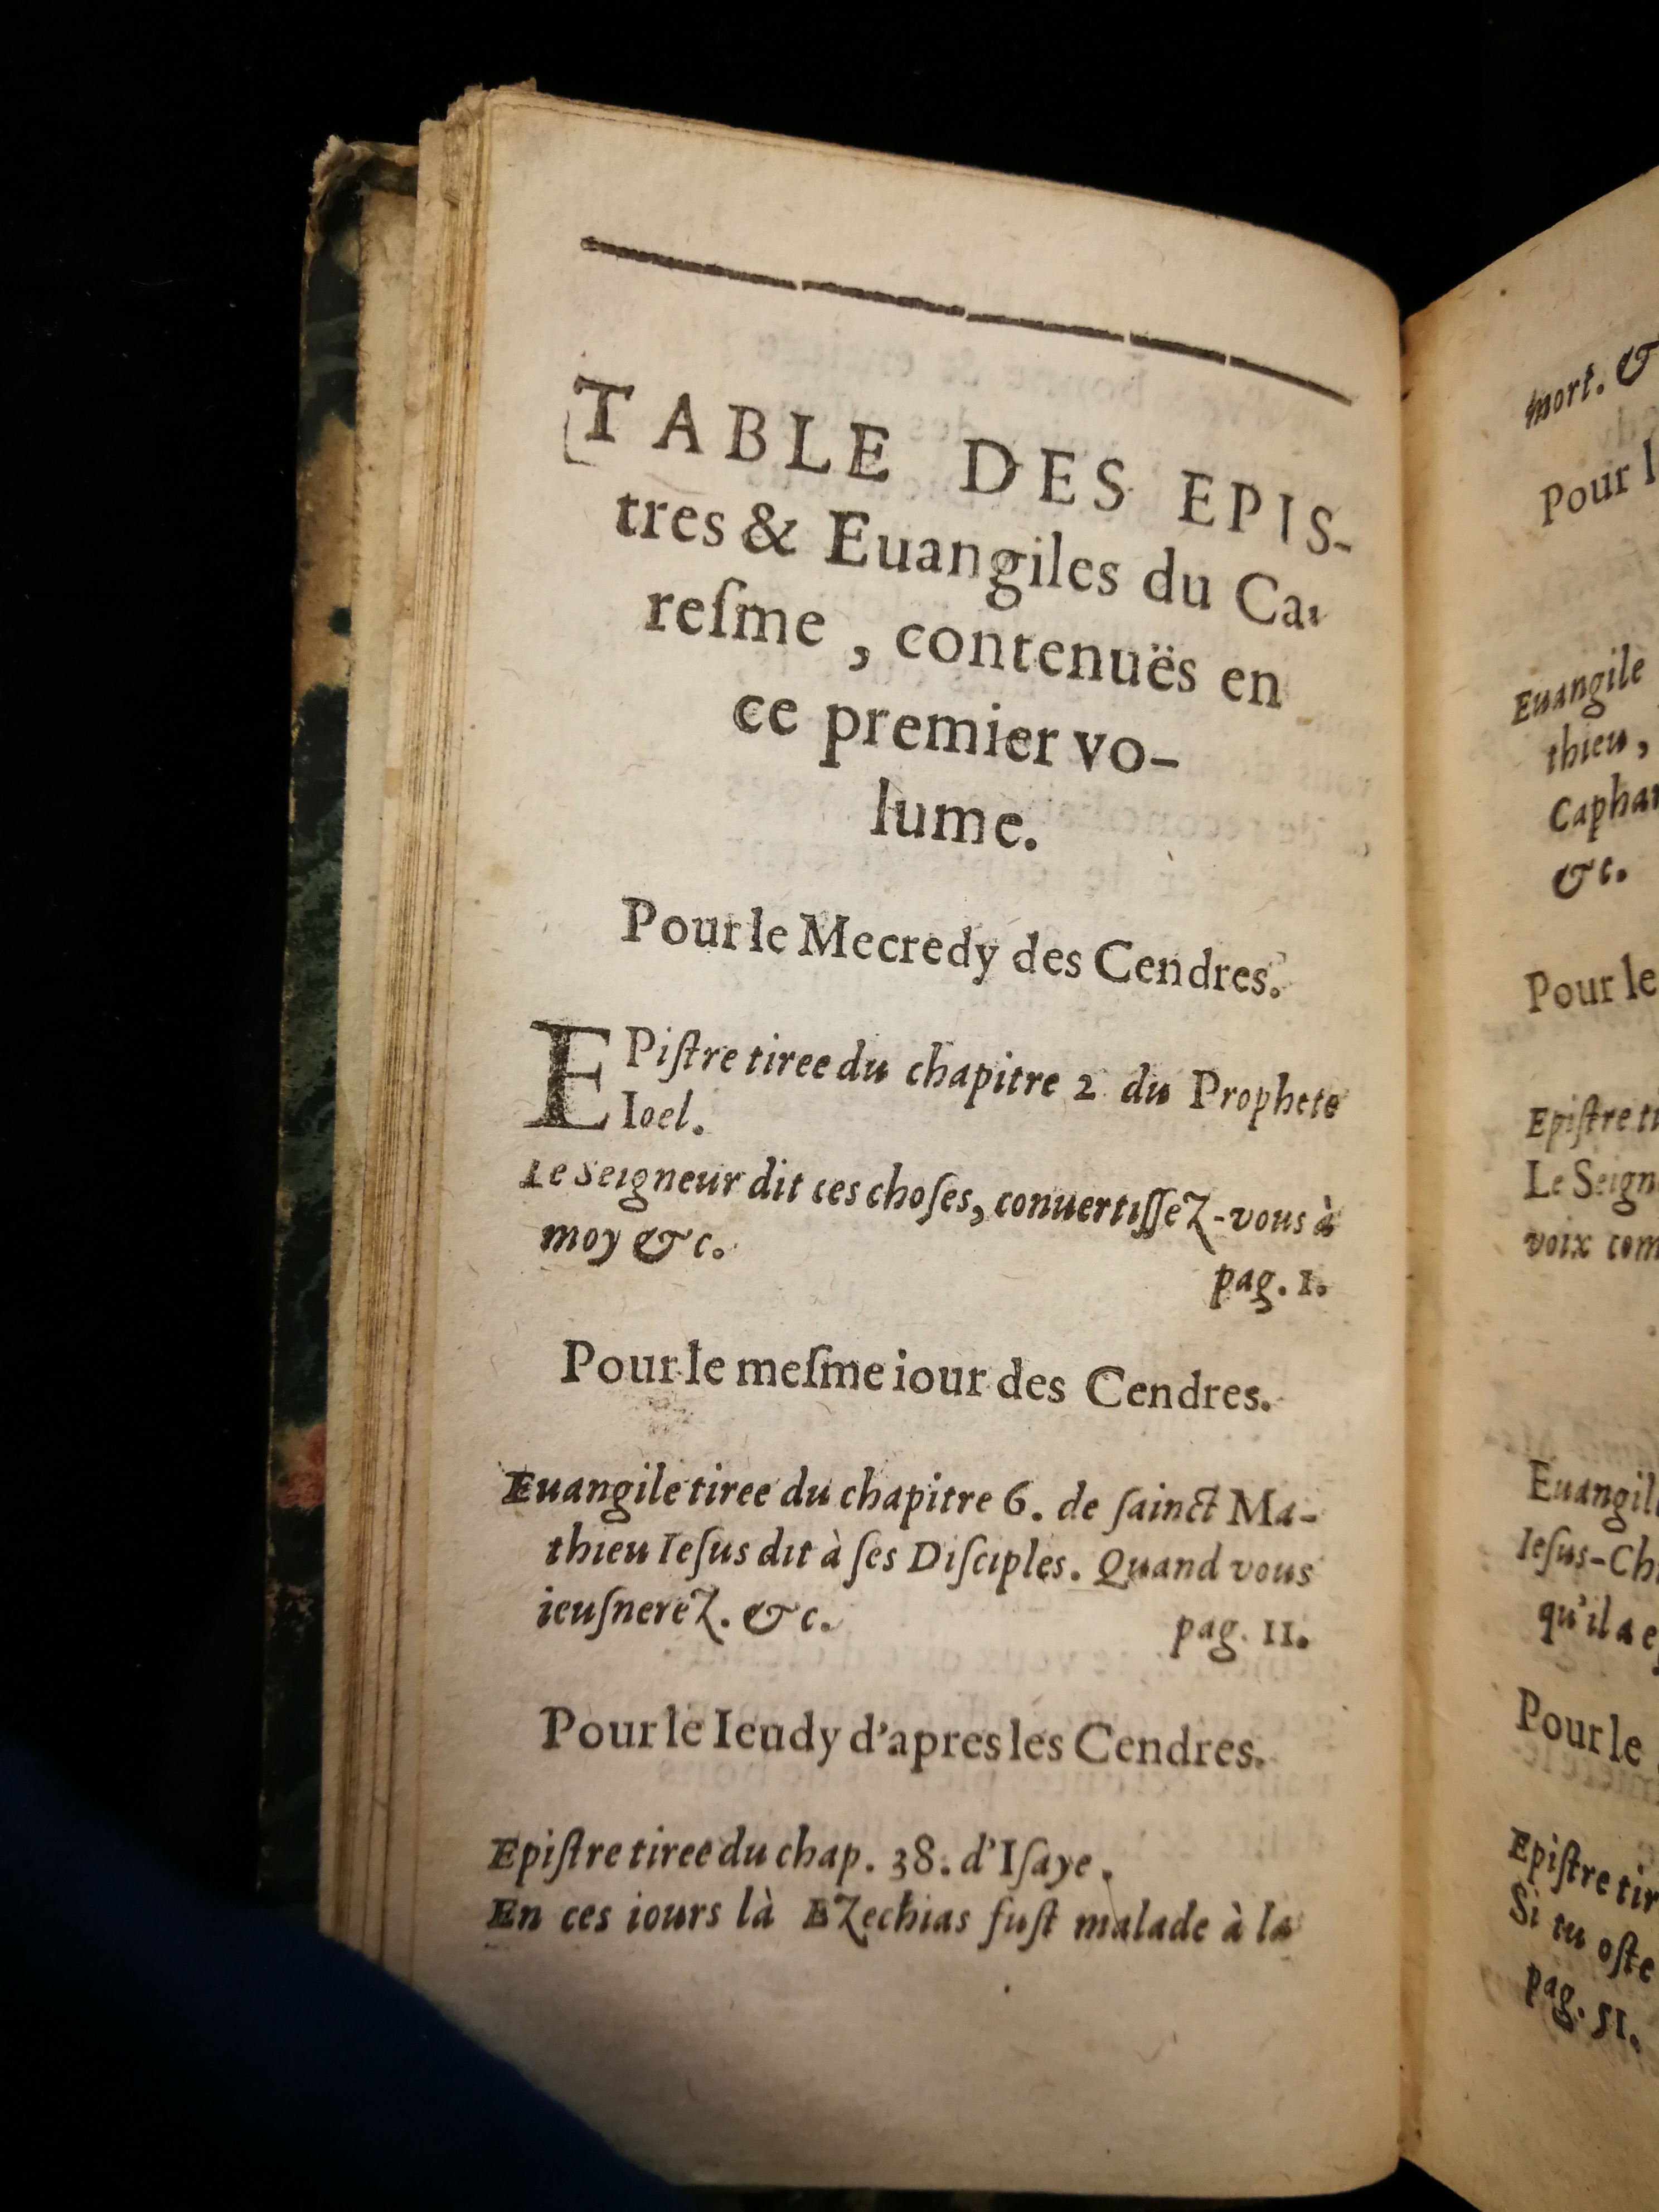 TABLE DES EPIS-
tres & Euangiles du Ca-
reſme , contenuës en
ce premier vo-
lume.
Pour le Mecredy des Cendres.
EPiſtre tiree du chapitre 2 du Prophete
Ioel.
Le Seigneur dit ces choſes, conuertiſſez-vous à
moy &c.
pag. 1.
Pour le meſme iour des Cendres.
Euangile tiree du chapitre 6. de ſainct Ma-
thieu Ieſus dit à ſes Diſciples. Quand vous
ieuſnerez. &c.
pag. 11.
Pour le Ieudy d'apres les Cendres.
Epiſtre tiree du chap. 38. d'Iſaye.
En ces iours là Ezechias fuſt malade à la
mort. &
Pour l
Euangile
thieu,
Caphar
&c.
Pour le
Epiſtre ti
Le Seign
voix com
Euangil
Ieſus-Ch
qu'il a e
Pour le
Epiſtre tir
Si tu oſte
pag. 51.